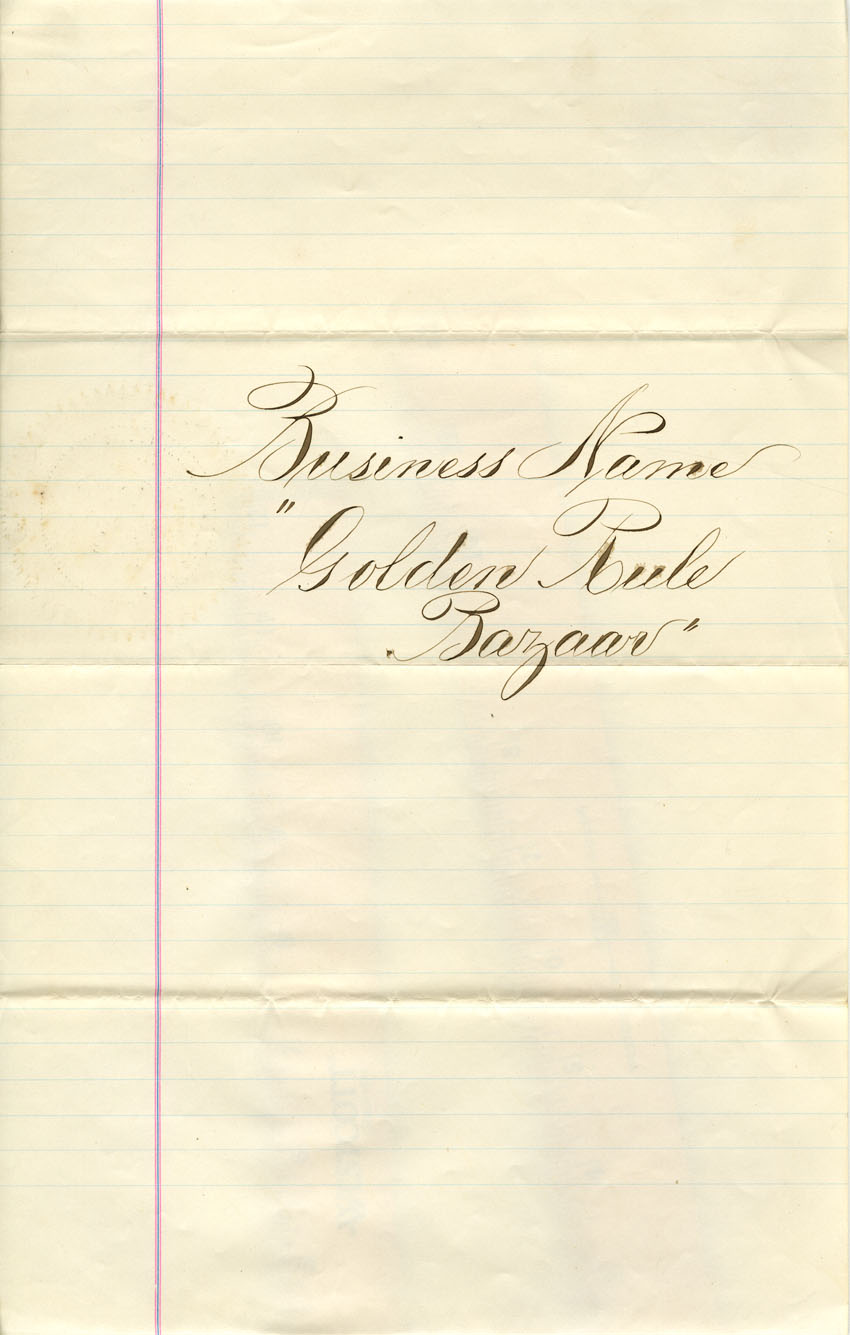 Business Name
"Golden Rule
Bazaar"